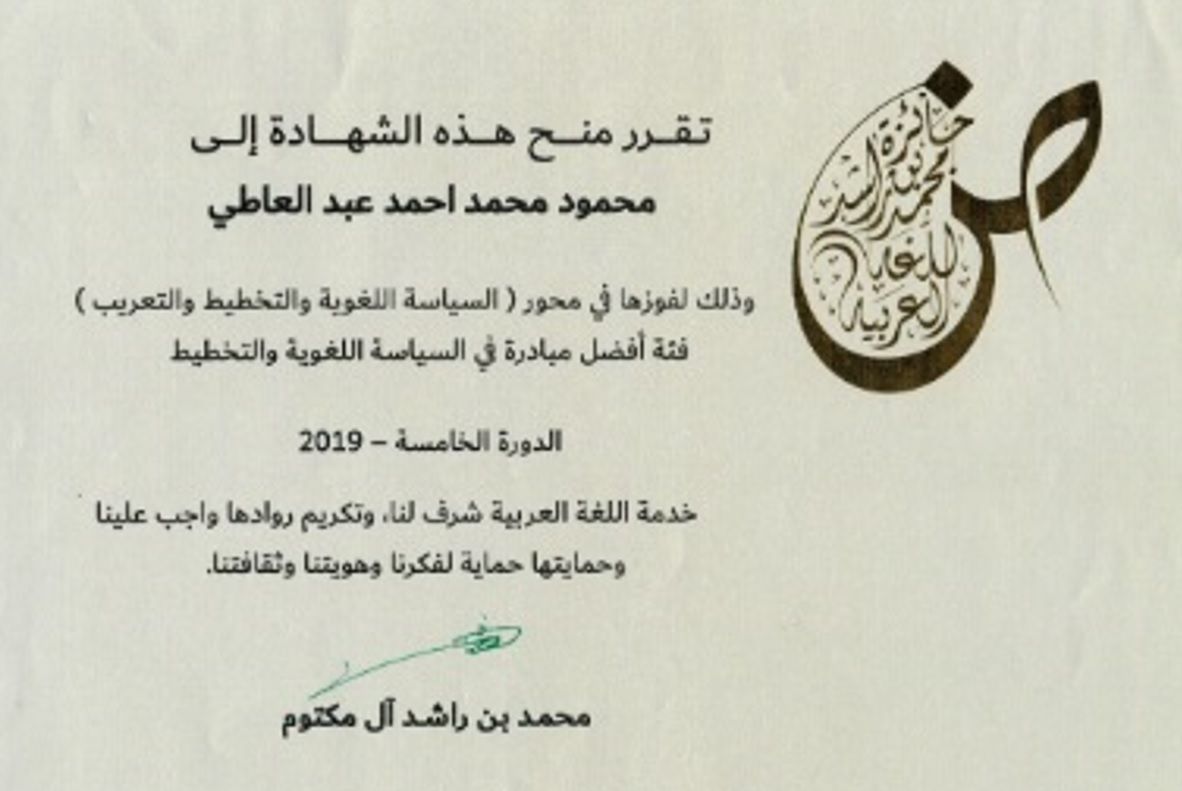 جائزة
محمد بن راشد
للغة
العربية
تقرر منح هذه الشهادة إلى
محمود محمد احمد عبد العاطي
وذلك لفوزها في محور ( السياسة اللغوية والتخطيط والتعريب )
فئة أفضل مبادرة في السياسة اللغوية والتخطيط
الدورة الخامسة – 2019
خدمة اللغة العربية شرف لنا، وتكريم روادها واجب علينا
وحمايتها حماية لفكرنا وهويتنا وثقافتنا.
محمد بن راشد آل مكتوم